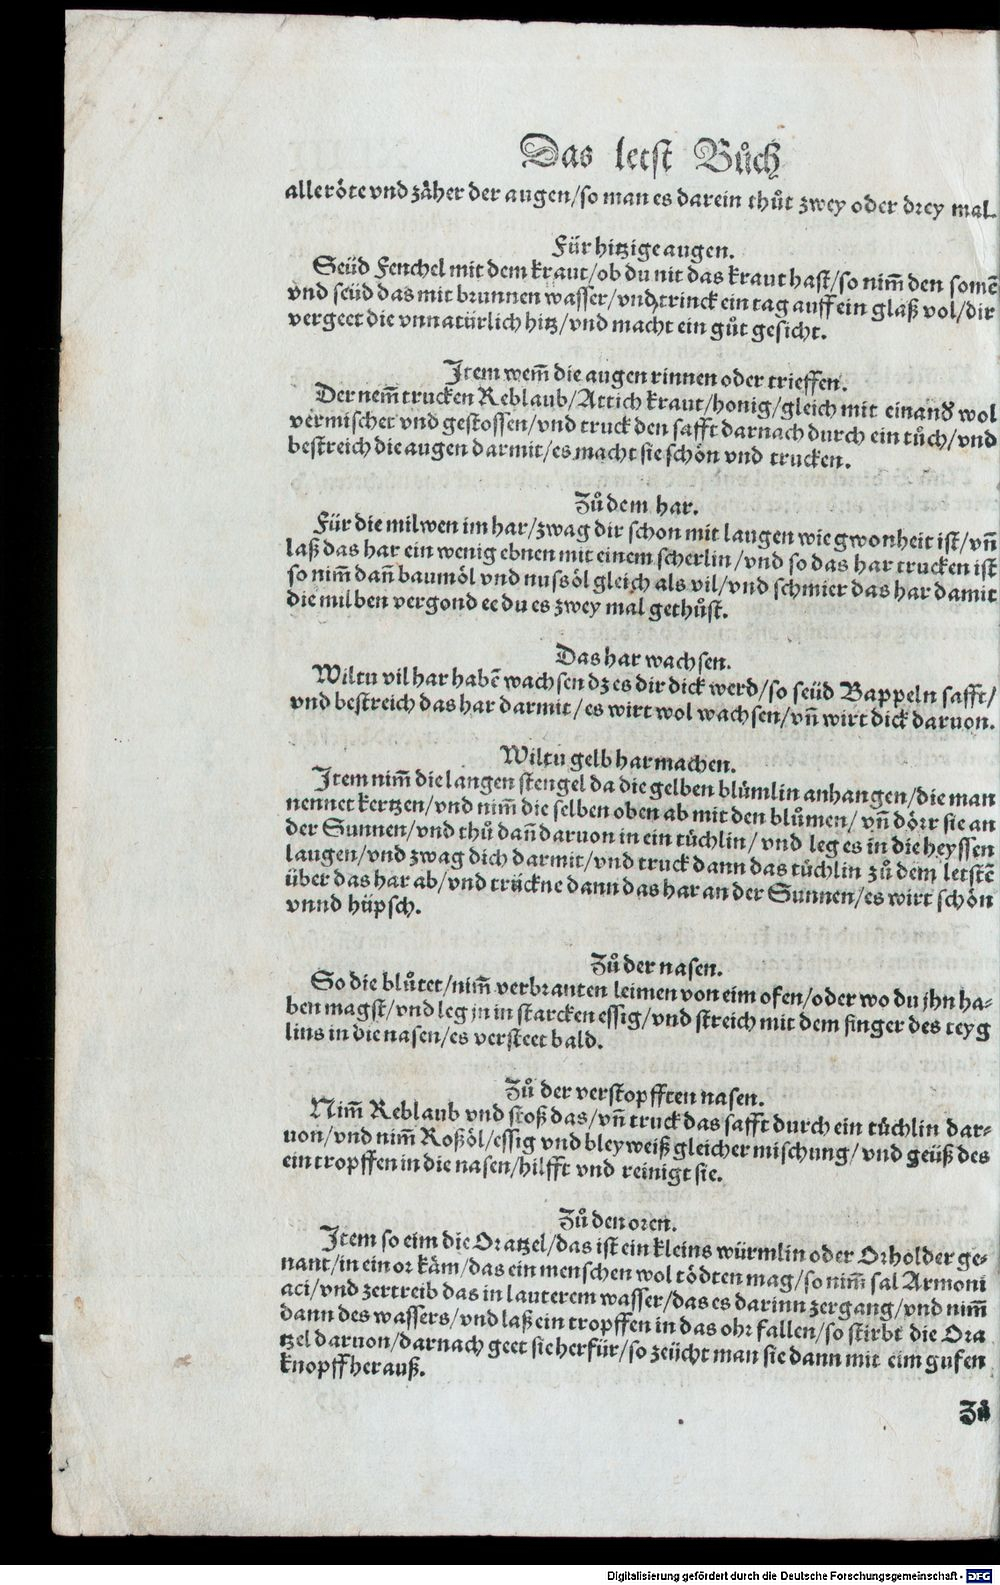 Das letst Bůch
alle röte vnd zäher der augen/so man es darein thůt zwey oder drey mal.
Für hitzige augen.
Seüd Fenchel mit dem kraut/ob du nit das kraut hast/so nim̃ den somẽ
vnd seüd das mit brunnen wasser/vnd trinck ein tag auff ein glaß vol/dir
vergeet die vnnatürlich hitz/vnd macht ein gůt gesicht.
Item wem̃ die augen rinnen oder trieffen.
Der nem̃ trucken Reblaub/Attich kraut/honig/gleich mit einanď wol
vermischet vnd gestossen/vnd truck den safft darnach durch ein tůch/vnd
bestreich die augen darmit/es macht sie schön vnd trucken.
Zů dem har.
Für die milwen im har/zwag dir schon mit laugen wie gwonheit ist/vñ
laß das har ein wenig ebnen mit einem scherlin/vnd so das har trucken ist
so nim̃ dañ baumöl vnd nussöl gleich als vil/vnd schmier das har damit
die milben vergond ee du es zwey mal gethůst.
Das har wachsen.
Wiltu vil har habẽ wachsen dz es dir dick werd/so seüd Bappeln safft/
vnd bestreich das har darmit/es wirt wol wachsen/vñ wirt dick daruon.
Wiltu gelb har machen.
Item nim̃ die langen stengel da die gelben blůmlin anhangen/die man
nennet kertzen/vnd nim̃ die selben oben ab mit den blůmen/vñ dörr sie an
der Sunnen/vnd thů dañ daruon in ein tůchlin/vnd leg es in die heyssen
laugen/vnd zwag dich darmit/vnd truck dann das tůchlin zů dem letstẽ
über das har ab/vnd trückne dann das har an der Sunnen/es wirt schön
vnnd hüpsch.
Zů der nasen.
So die blůtet/nim̃ verbranten leimen von eim ofen/oder wo du jhn ha-
ben magst/vnd leg jn in starcken essig/vnd streich mit dem finger des teyg
lins in die nasen/es versteet bald.
Zů der verstopfften nasen.
Nim̃ Reblaub vnd stoß das/vñ truck das safft durch ein tůchlin dar-
uon/vnd nim̃ Roßöl/essig vnd bleyweiß gleicher mischung/vnd geüß des
ein tropffen in die nasen/hilfft vnd reinigt sie.
Zů den oren.
Item so eim die Oratzel/das ist ein kleins würmlin oder Orholder ge-
nant/in ein or käm/das ein menschen wol tödten mag/so nim̃ sal Armoni
aci/vnd zertreib das in lauterem wasser/das es darinn zergang/vnd nim̃
dann des wassers/vnd laß ein tropffen in das ohr fallen/so stirbt die Ora
tzel daruon/darnach geet sie herfür/so zeücht man sie dann mit eim gufen
knopff herauß.
Zů
Digitalisierung gefördert durch die Deutsche Forschungsgemeinschaft - DFG